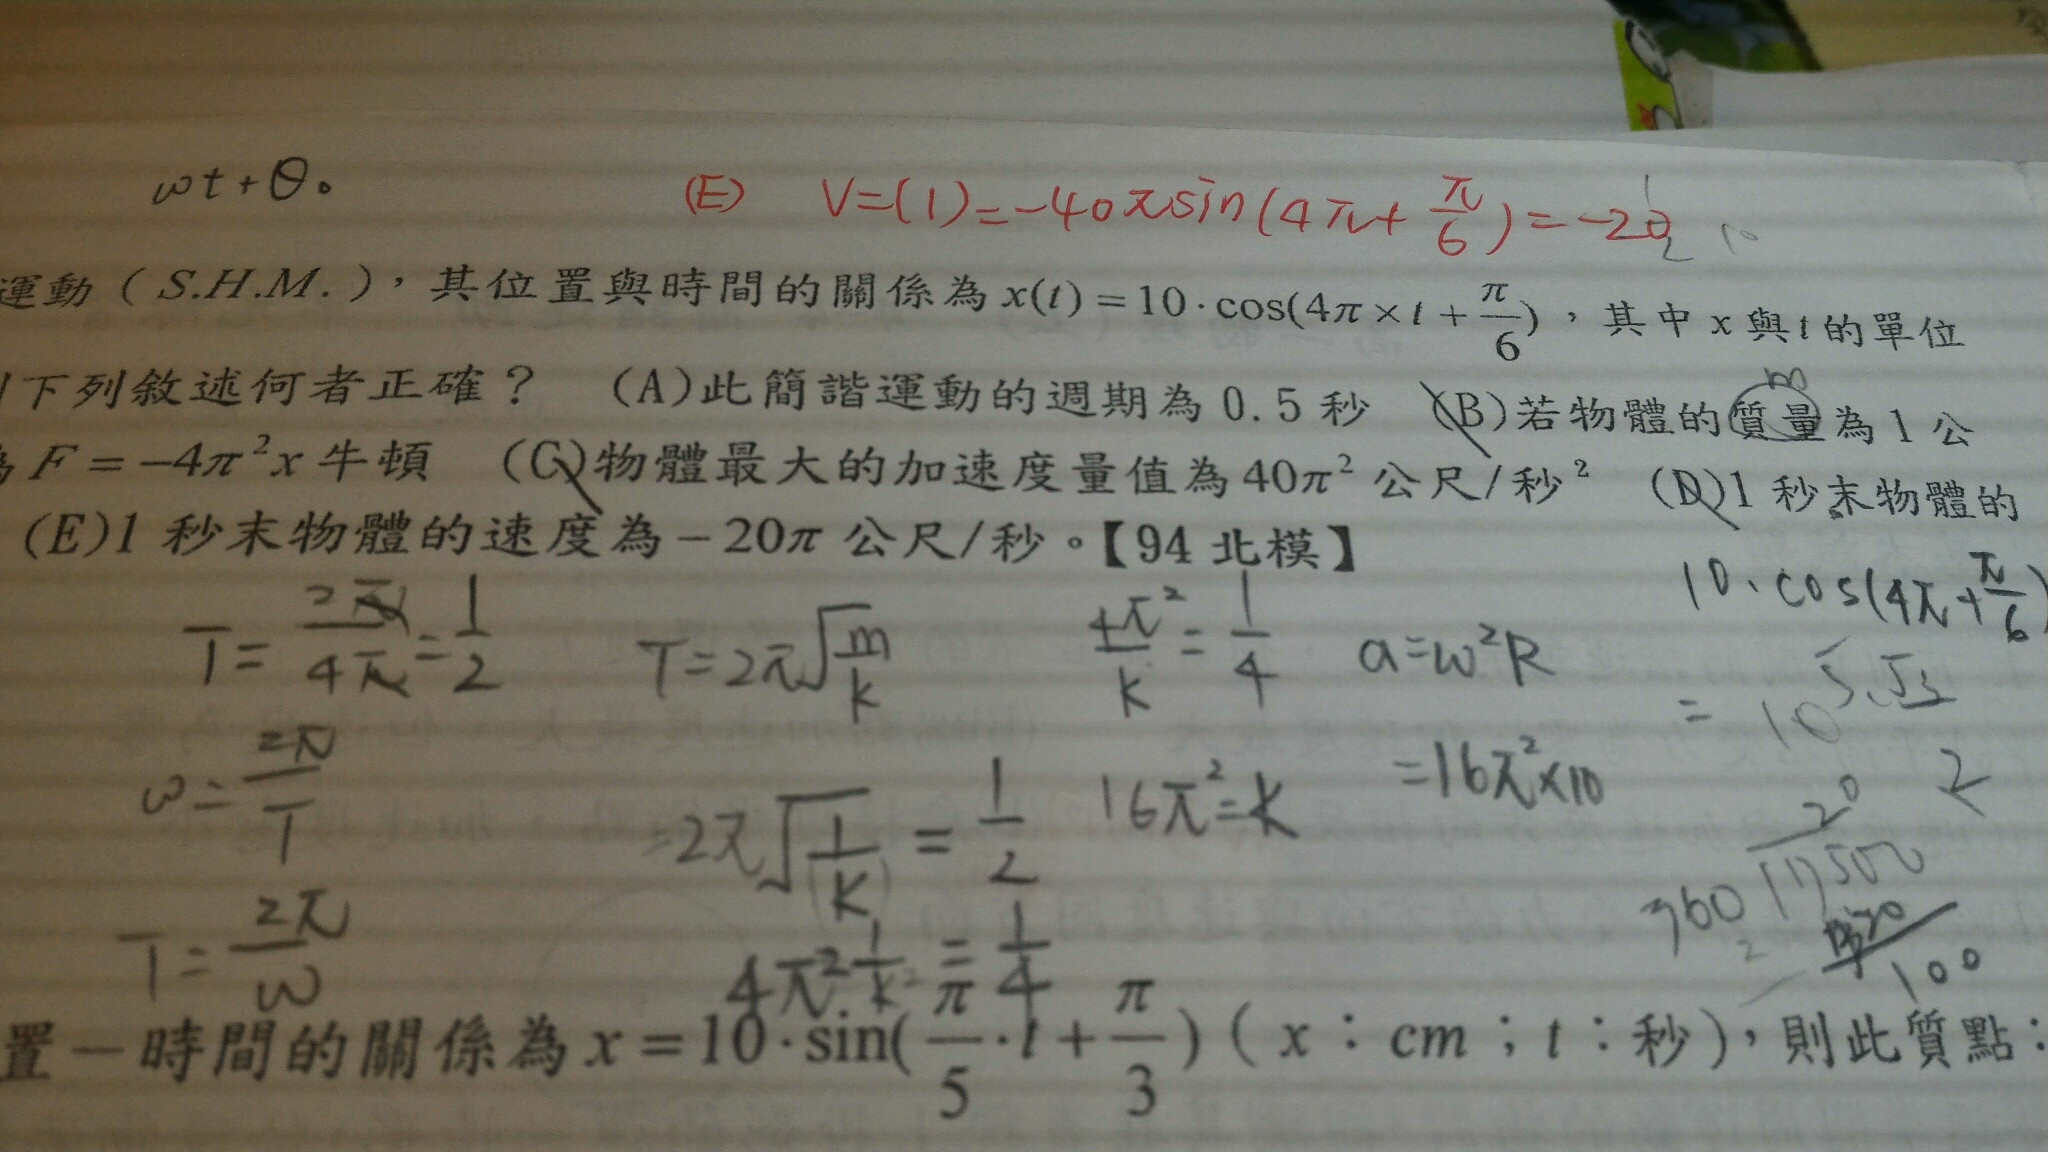 ωt+θ。
(E) V=(1)=-40πsin(4π+π/6)=-20
運動(S.H.M.),其位置與時間的關係為x(t)=10·cos(4π×t+π/6),其中x與t的單位
下列敘述何者正確? (A)此簡諧運動的週期為0.5秒 (B)若物體的質量為1公
m
F=-4π²x牛頓 (C)物體最大的加速度量值為40π²公尺/秒² (D)1秒末物體的
(E)1秒末物體的速度為-20π公尺/秒。【94北模】
T=2π/4π=1/2 T=2π√(m/k) 4π²/k=1/4 a=ω²R 10·cos(4π+π/6)
ω=2π/T =2π√(1/k)=1/2 16π²=k =16π²×10
T=2π/ω 4π² 1/k =1/4
360 100
置-時間的關係為x=10·sin(π/5·t+π/3)(x:cm;t:秒),則此質點: